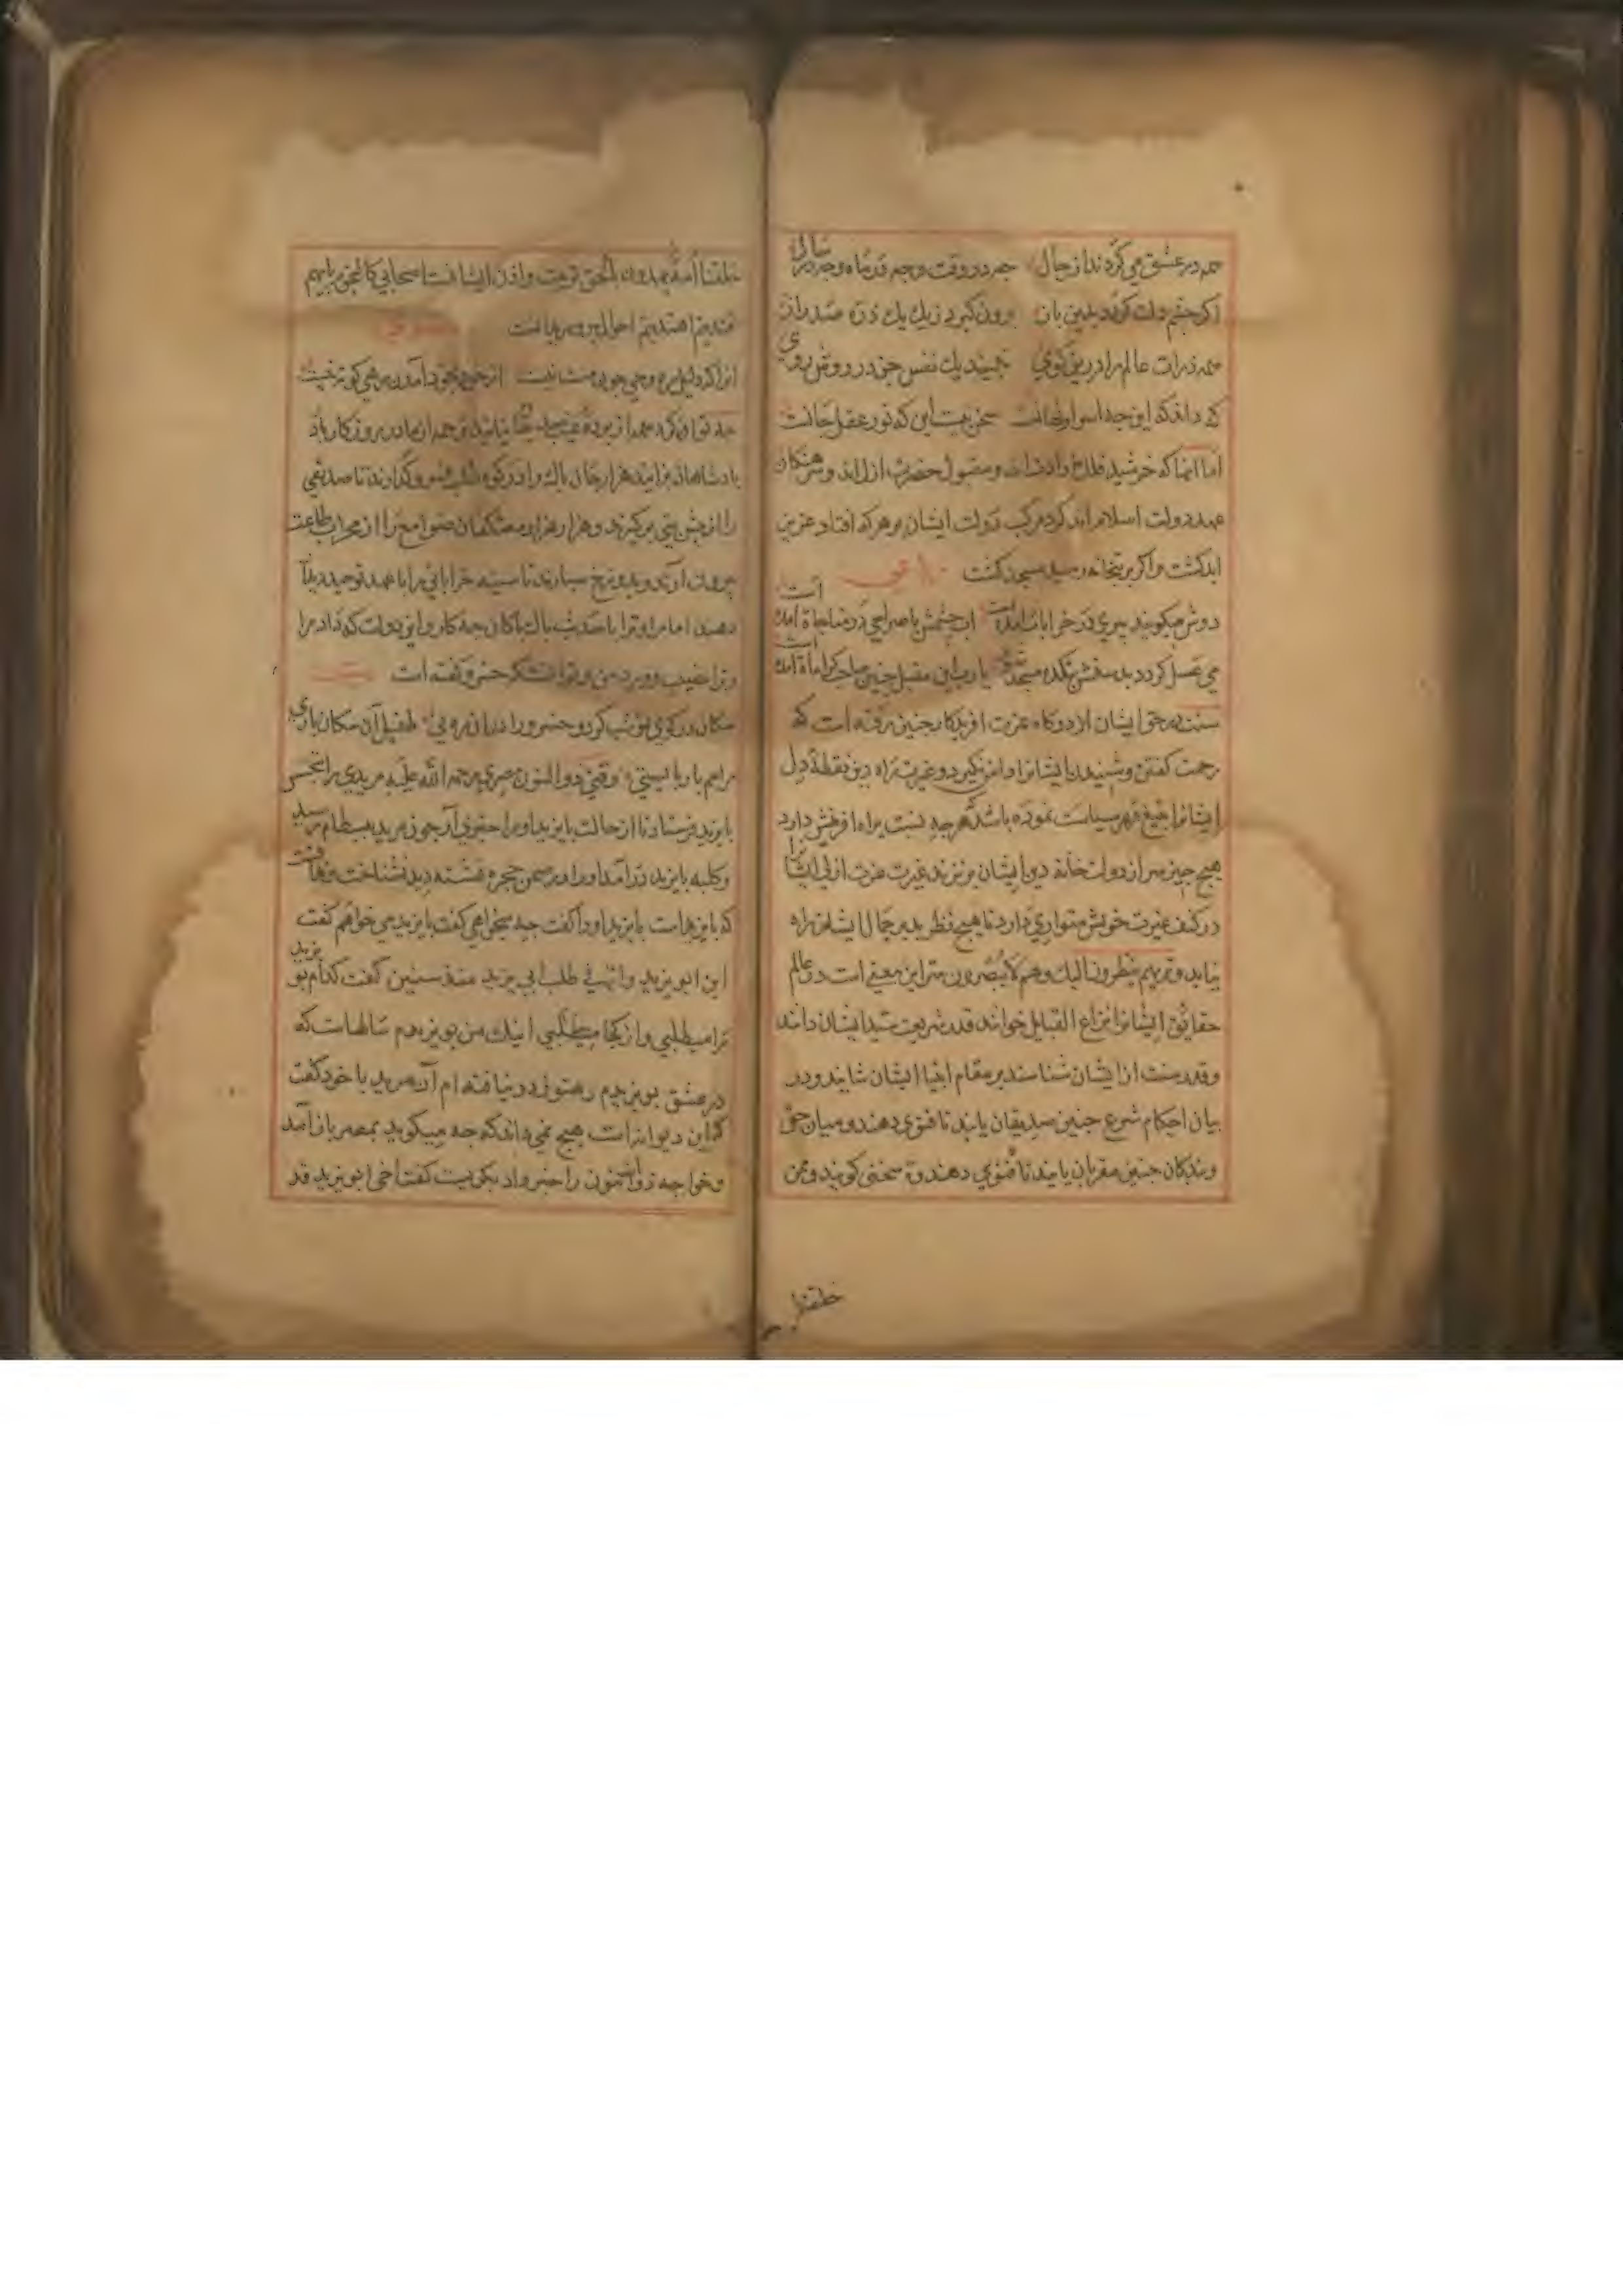 همه در عشق می گردند از حال چه در وقت و چه در ماه و چه در سال
اگر چشم دلت گردد بدین باز برون گیرد ز یک یک ذره صد راز
همه ذرات عالم را درین کوی نبیند یک نفس جز در روش روی
که داند که این چه اسرار نهانست سخن نیست این که نور عقل جانست
اما آنها که خرشید فلک اند و مقبول حضرت ازل اند و سرهنگان
عهد دولت اسلام اند گرد مرکب دولت ایشان بر هر که افتاد عزیز
ابد گشت و اگر بر بتخانه رسید مسجد گشت
دوش میگویند پیری در خرابات آمده است آب چشمش با صراحی در مناجات آمده است
می عسل گردد بدستش بتکده مسجد شود یا رب این مقبل چنین صاحب کرامات آمده است
سنت در حق ایشان از درگاه عزت افریدگار چنین رفته است که
زحمت گفتن و شنیدن ایشانرا دامن نگیرد و غیرت راه دین نقطهٔ دل
ایشانرا بتیغ قهر سیاست نموده باشد هر چه نسبت براه افرینش دارد
هیچ چیز سر از دولت خانه دین ایشان بر نزند غیرت عزت ازلی ایشانرا
در کنف غیرت خویش متواری دارد تا هیچ نظر بد بر جمال ایشان راه
نیابد و تریهم ینظرون الیک و هم لا یبصرون سر این معنی است در عالم
حقایق ایشانرا نزاع القبایل خوانند قدر شریعت سید ایشان دانند
و قدر سنت از ایشان شناسند بر مقام انبیا ایشان شایند و در
بیان احکام شرع چنین صدیقان یابند تا فتوی دهند و میان حق
و بندگان چنین مقربان یابند تا فتوی دهند و سخنی گویند و ممن
خلقنا
خلقنا امة یهدون بالحق تربیت و اذن ایشانست اصحابی کالنجوم بایهم
اقتدیتم اهتدیتم احوال
از خود بخود آمدن رهی کوته نیست
پادشاهان برآیند هزار جان پاک را در کوه طلب فرو گذارند تا صدیقی
را از پیش بر گیرند و هزار هزار معتکفان صوامع را از محراب طاعت
بیرون آرند و بدوزخ سپارند تا سینه خراباتی را با عهد توحید دیدار
دهند اما مرا و ترا با حدیث پاکان چه کار و این دولت که داد مرا
و ترا نصیب و ورد من و تو آنست که خسرو گفته است
سگان در کوی تو شب گرد و خسرو را در آن ره نی طفیل آن سگان باری
مرا هم بار بایستی وقتی ذو النون مصری رحمة الله علیه مریدی را بتجسس
بایزید فرستاد تا از حالت بایزید او را خبری آرد چون مرید ببسطام رسید
و کلبه بایزید در آمد او را در صحن حجره نشسته دید نشناخت
که بایزید است بایزید او را گفت چه میخواهی گفت بایزید می خواهم گفت
این ابو یزید و انا فی طلب ابی یزید منذ سنین گفت کدام بو یزید
ترا میطلبی و از کجا میطلبی اینک من بویزیدم سالهاست که
در عشق بویزیدم و هنوز در نیافته ام آن مرید با خود گفت
که این دیوانه است هیچ نمی داند که چه میگوید بمصر باز آمد
و خواجه ذو النون را خبر داد بگریست گفت اخی ابو یزید قد